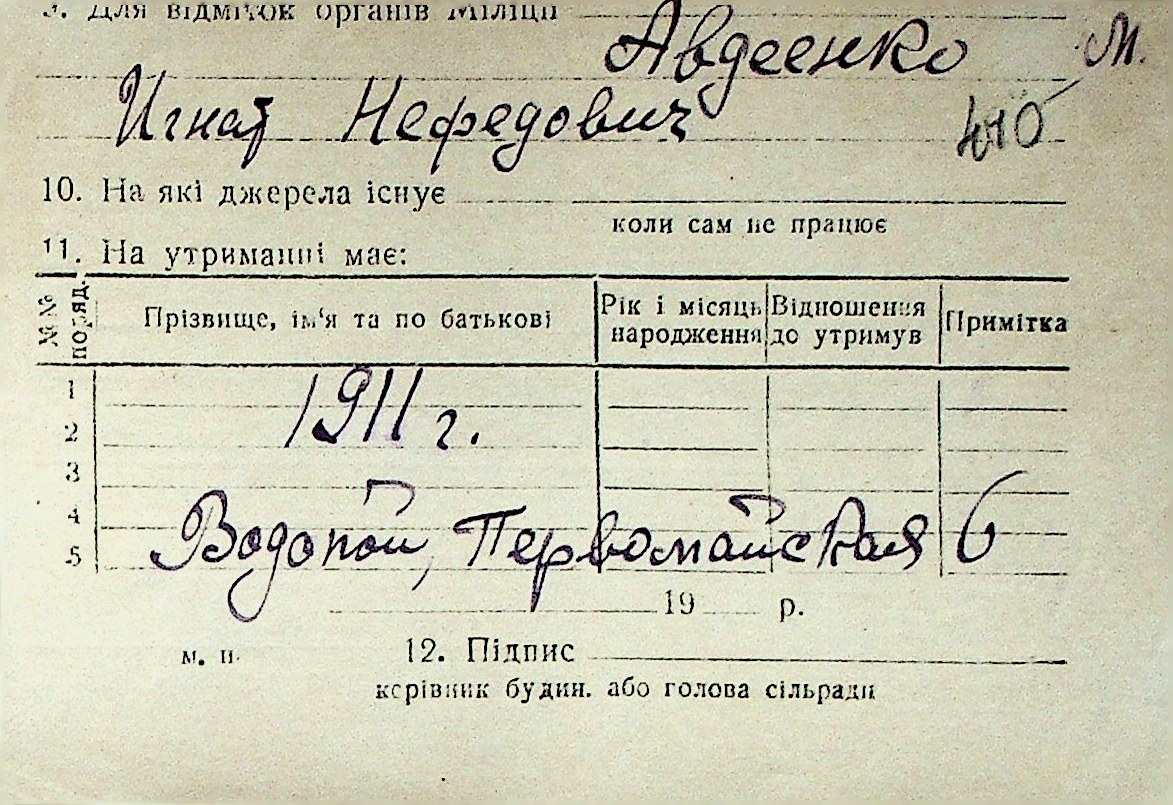 9. Для відміток органів міліції
Авдеенко М.
Игнат Нефедович 410
10. На які джерела існує
коли сам не працює
11. На утриманні має:
№№ поряд. Прізвище, ім'я та по батькові Рік і місяць народження Відношення до утримув Примітка
1
1911 г.
2
3
4
5 Водопой, Первомайская 6
19 р.
м. п. 12. Підпис
керівник будин. або голова сільради